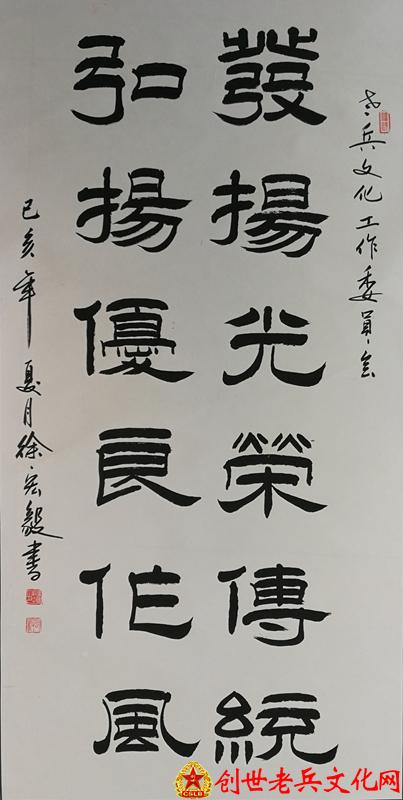 老兵文化工作委員会
發揚光榮傳統
弘揚優良作風
己亥年夏月徐宏毅書
CSLB
创世老兵文化网